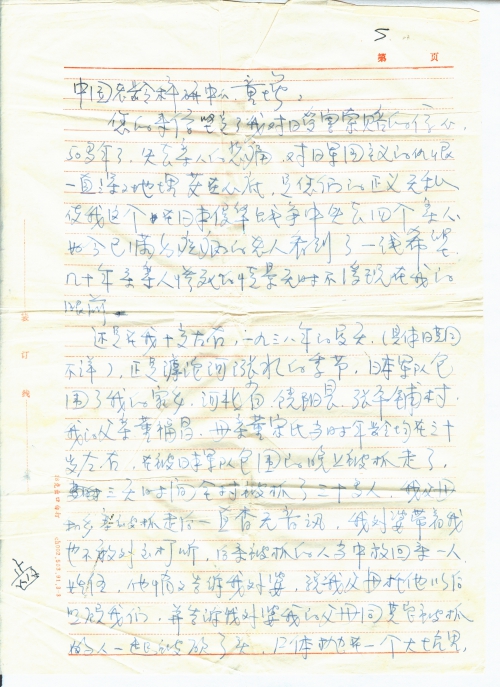 5
第 页
中国老龄科研中心、童增:
您的来信坚定了我对日受害索赔的信心,
50多年了,失去亲人的悲痛,对日军国主义的仇恨
一直深深地埋藏在心底,是您们的正义无私
使我这个在日本侵华战争中失去四个亲人
如今已满身疾病的老人看到了一线希望
几十年来亲人惨死的情景无时不浮现在我的
眼前。
还是在我十岁左右,一九三八年的夏天(具体日期
不详),正是滹沱河涨水的季节,日本军队包
围了我的家乡,河北省饶阳县张平铺村,
我的父亲董福昌,母亲董宋氏当时年龄均在三十
岁左右,在被日军队包围的晚上被抓走了,
三天时间全村被抓了二十多人,
被抓走后一直杳无音讯,我外婆带着我
也不敢对主打听,后来被抓的人当中放回来一人
他悄悄告诉我外婆,说我父母托他以后
照顾我们,并告诉我外婆我的父母同其它被抓
的人一起被砍了头,尸体抛在一个大土坑里,
装订线